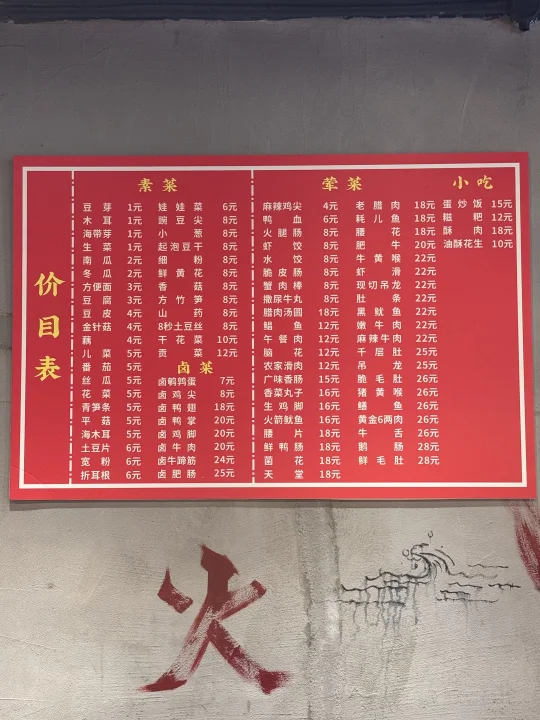 价目表
素菜
豆芽 1元
木耳 1元
海带芽 1元
生菜 1元
南瓜 2元
冬瓜 2元
方便面 3元
豆腐 3元
豆皮 4元
金针菇 4元
藕 4元
儿菜 5元
番茄 5元
丝瓜 5元
花菜 5元
青笋条 5元
平菇 5元
海木耳 5元
土豆片 6元
宽粉 6元
折耳根 6元
娃娃菜 6元
豌豆尖 8元
小葱 8元
起泡豆干 8元
细粉 8元
鲜黄花 8元
香菇 8元
方竹笋 8元
山药 8元
8秒土豆丝 8元
干花菜 10元
贡菜 12元
卤菜
卤鹌鹑蛋 7元
卤鸡尖 8元
卤鸭翅 18元
卤鸭掌 20元
卤鸡脚 20元
卤牛肉 20元
卤牛蹄筋 24元
卤肥肠 25元
荤菜
麻辣鸡尖 4元
鸭血 6元
火腿肠 8元
虾饺 8元
水饺 8元
脆皮肠 8元
蟹肉棒 8元
撒尿牛丸 8元
腊肉汤圆 18元
鲳鱼 12元
午餐肉 12元
脑花 12元
农家滑肉 12元
广味香肠 15元
香菜丸子 16元
生鸡脚 16元
火箭鱿鱼 16元
腰片 18元
鲜鸭肠 18元
菌花 18元
天堂 18元
老腊肉 18元
耗儿鱼 18元
腰花 18元
肥牛 20元
牛黄喉 22元
虾滑 22元
现切吊龙 22元
肚条 22元
黑鱿鱼 22元
嫩牛肉 22元
麻辣牛肉 22元
千层肚 25元
吊龙 25元
脆毛肚 26元
猪黄喉 26元
鳝鱼 26元
黄金6两肉 26元
牛舌 26元
鹅肠 28元
鲜毛肚 28元
小吃
蛋炒饭 15元
糍粑 12元
酥肉 18元
油酥花生 10元
火